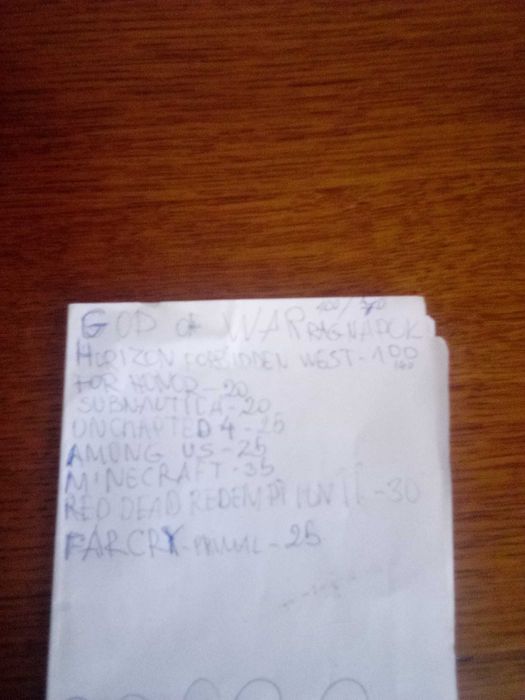 GOD OF WAR RAGNAROK
HORIZON FORBIDDEN WEST - 100
FOR HONOR - 20
SUBNAUTICA - 20
UNCHARTED 4 - 25
AMONG US - 25
MINECRAFT - 35
RED DEAD REDEMPTION II - 30
FARCRY - PRIMAL - 25